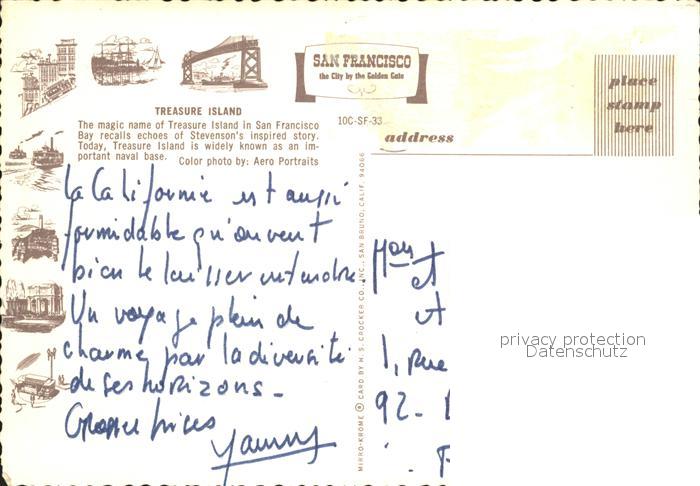 SAN FRANCISCO
the City by the Golden Gate
place
stamp
here
TREASURE ISLAND
The magic name of Treasure Island in San Francisco
Bay recalls echoes of Stevenson's inspired story.
Today, Treasure Island is widely known as an im-
portant naval base. Color photo by: Aero Portraits
10C-SF-33
address
La Californie est aussi
formidable qu'on veut
bien le laisser entendre
Un voyage plein de
charme par la diversité
de ses horizons -
Grosses bises
MIRRO-KROME ® CARD BY H. S. CROCKER CO., INC., SAN BRUNO, CALIF. 94066
Mon et
et
et
1, Rue
92 -
privacy protection
Datenschutz